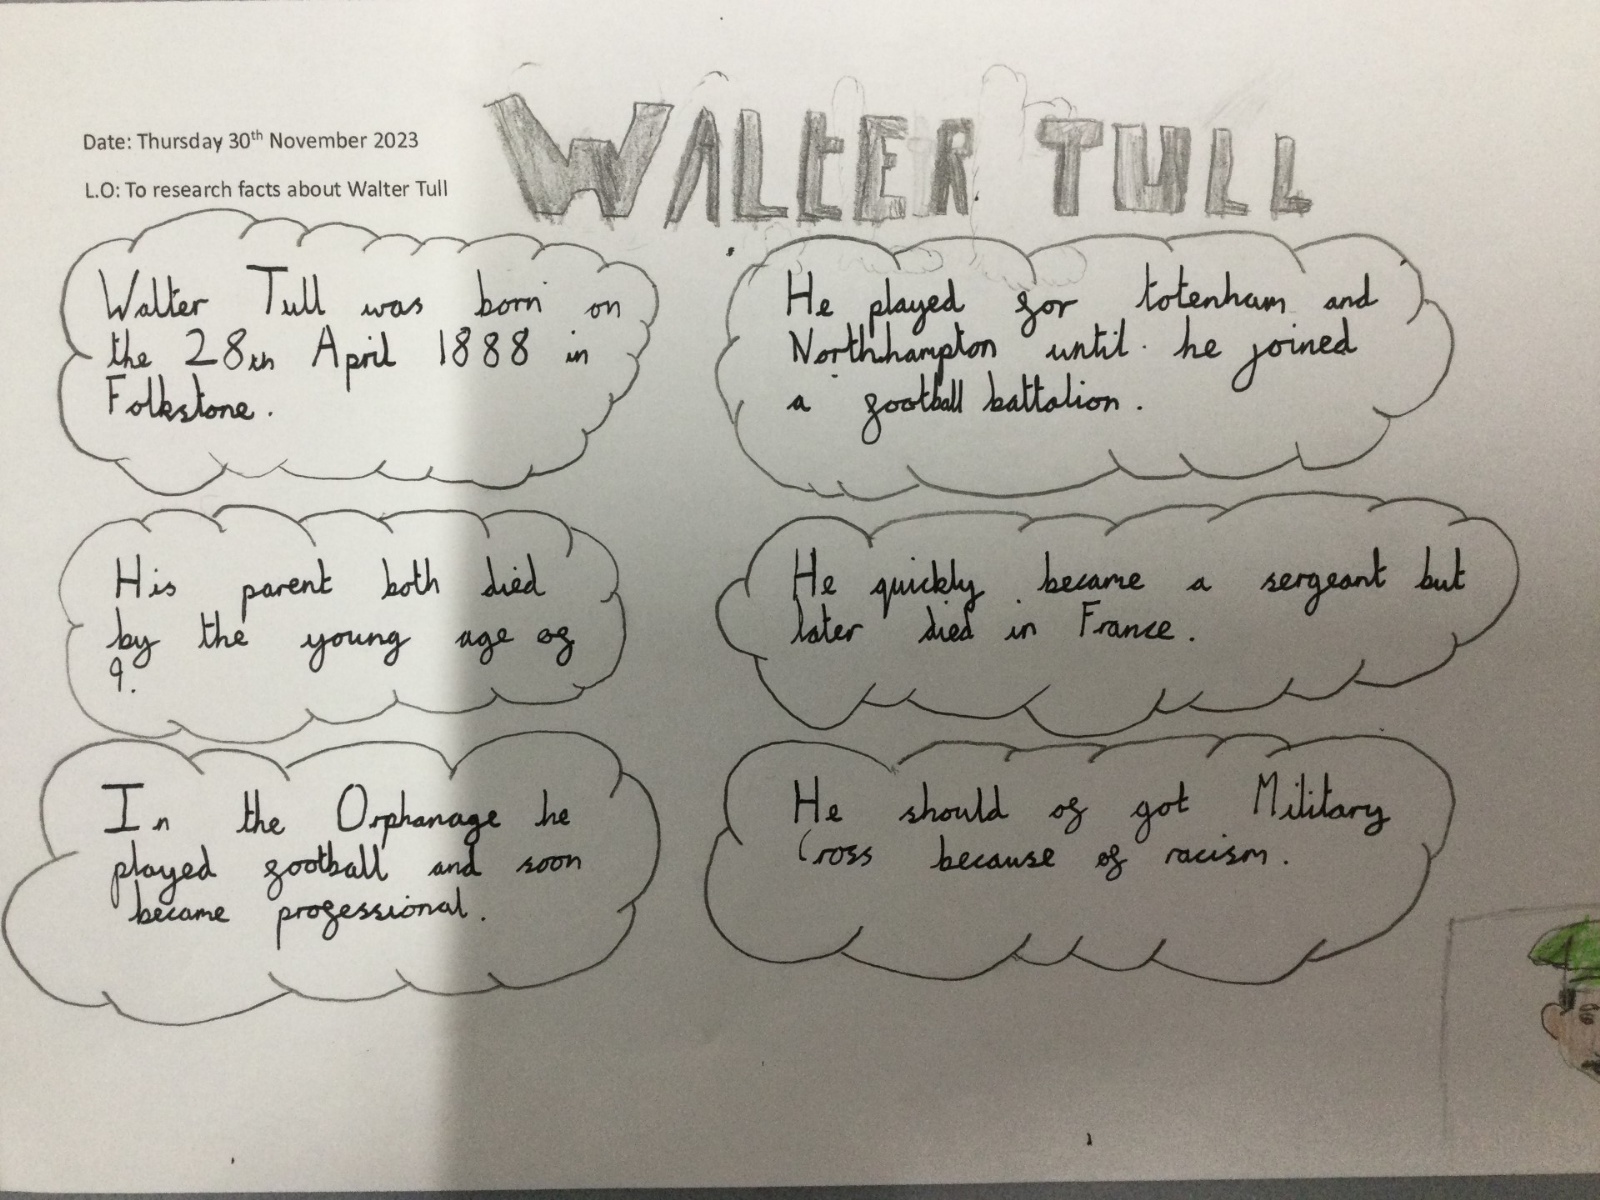 WALTER TULL
Date: Thursday 30th November 2023
L.O: To research facts about Walter Tull
Walter Tull was born on
the 28th April 1888 in
Folkstone.
His parent both died
by the young age of
9.
In the Orphanage he
played football and soon
became professional.
He played for totenham and
Northhampton until he joined
a football battalion.
He quickly became a sergeant but
later died in France.
He should of got Military
Cross because of racism.